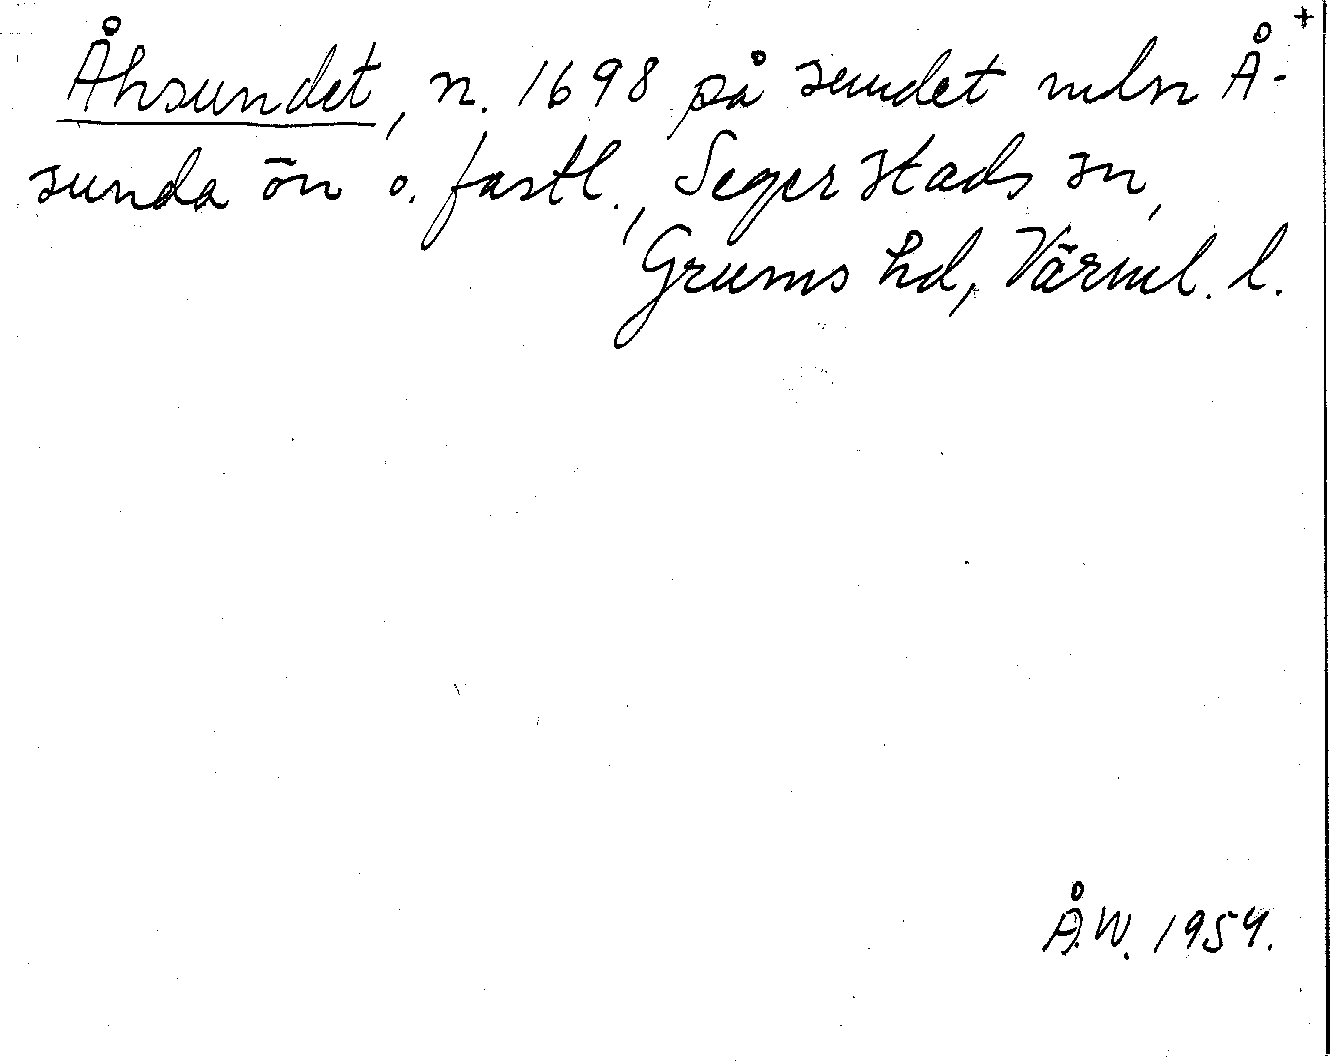 +
Åhsundet, n. 1698 på sundet mln Å-
sunda ön o. fastl., Segerstads sn,
Grums hd, Värml. l.
Å.W. 1954.